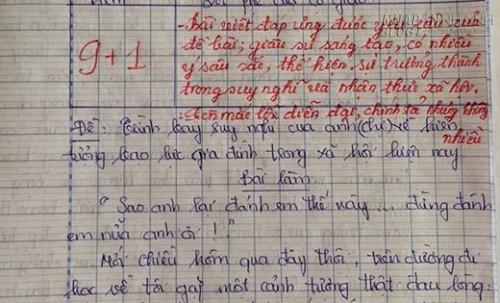 9+1
- Bài viết đáp ứng được yêu cầu của
đề bài; giàu sự sáng tạo, có nhiều
ý sâu sắc, thể hiện sự trưởng thành
trong suy nghĩ và nhân thức xã hội.
- Còn mắc lỗi diễn đạt, chính tả nhưng không
nhiều
Đề: Trình bày suy nghĩ của anh (chị) về hiện
tượng bạo lực gia đình trong xã hội hiện nay
Bài làm
" Sao anh lại đánh em thế này ... đừng đánh
em nữa anh ơi ! "
Mới chiều hôm qua đây thôi, trên đường đi
học về tôi gặp một cảnh tượng thật đau lòng: